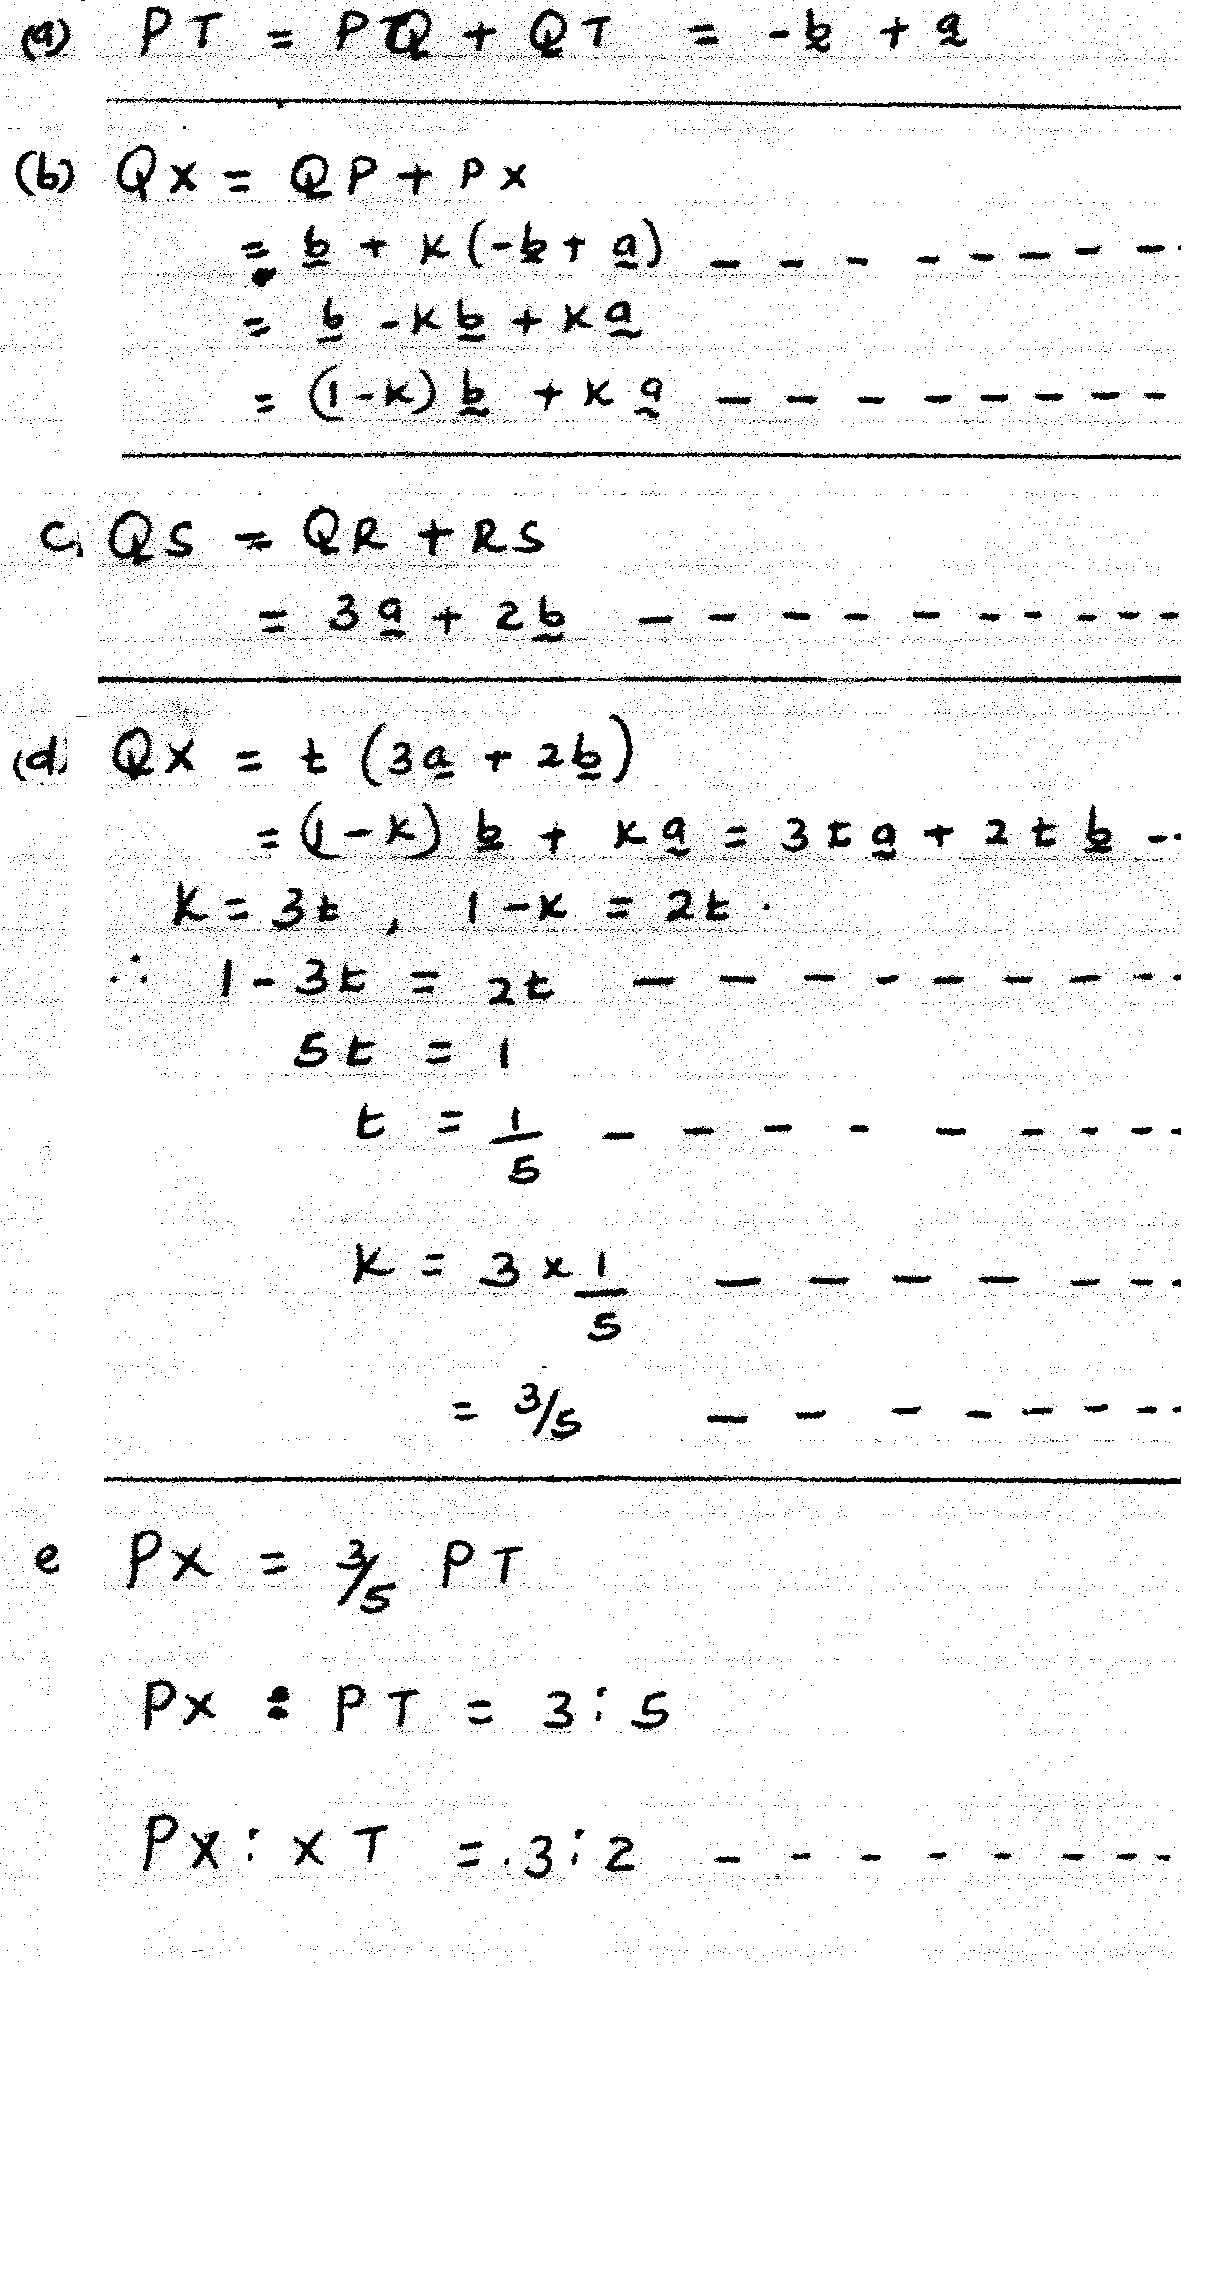 (a) PT = PQ + QT = -b + a
(b) QX = QP + PX
= b + k(-b + a) - - - - - - - -
= b - kb + ka
= (1-k) b + k a - - - - - - -
c, QS = QR + RS
= 3a + 2b - - - - - - - - -
(d) QX = t (3a + 2b)
= (1-k) b + ka = 3ta + 2tb --
k = 3t , 1-k = 2t .
∴ 1 - 3t = 2t - - - - - - - -
5t = 1
t = 1/5 - - - - - - - - -
k = 3 x 1/5 - - - - - - -
= 3/5 - - - - - - - -
e PX = 3/5 PT
PX : PT = 3:5
PX : XT = 3:2 - - - - - - - -